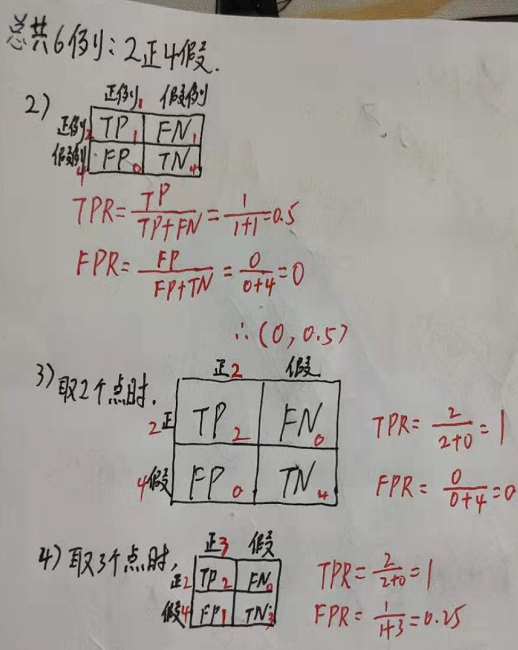 总共6例：2正4假.
2)
正例1 假例
正例2 TP1 FN1
假例4 FP0 TN4
TPR=TP/(TP+FN)=1/(1+1)=0.5
FPR=FP/(FP+TN)=0/(0+4)=0
∴(0,0.5)
3) 取2个点时.
正2 假
2正 TP2 FN0
4假 FP0 TN4
TPR=2/(2+0)=1
FPR=0/(0+4)=0
4) 取3个点时,
正3 假
正2 TP2 FN0
假4 FP1 TN3
TPR=2/(2+0)=1
FPR=1/(1+3)=0.25